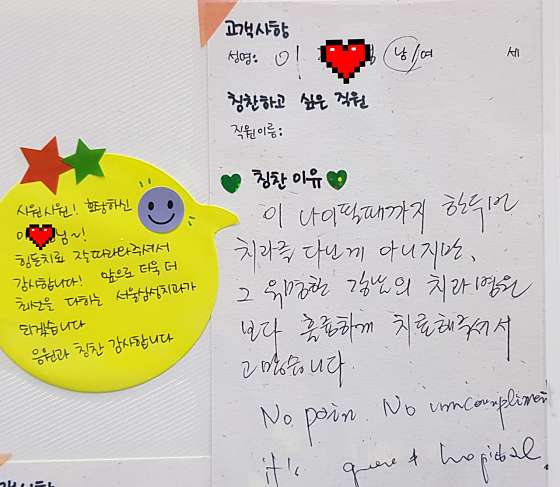 고객사항
성명: 이 남/여 세
칭찬하고 싶은 직원
직원이름:
칭찬 이유
이 나이먹때까지 한두번
치과를 다닌게 아니지만,
그 유명한 강남의 치과병원
보다 훌륭하게 치료해주셔서
고맙습니다.
No pain. No
it's hospital.
시원시원! 호탕하신
이 님~!
힘든치료 잘따라와주셔서
감사합니다! 앞으로 더욱 더
최선을 다하는 서울삼성치과가
되겠습니다
응원과 칭찬 감사합니다